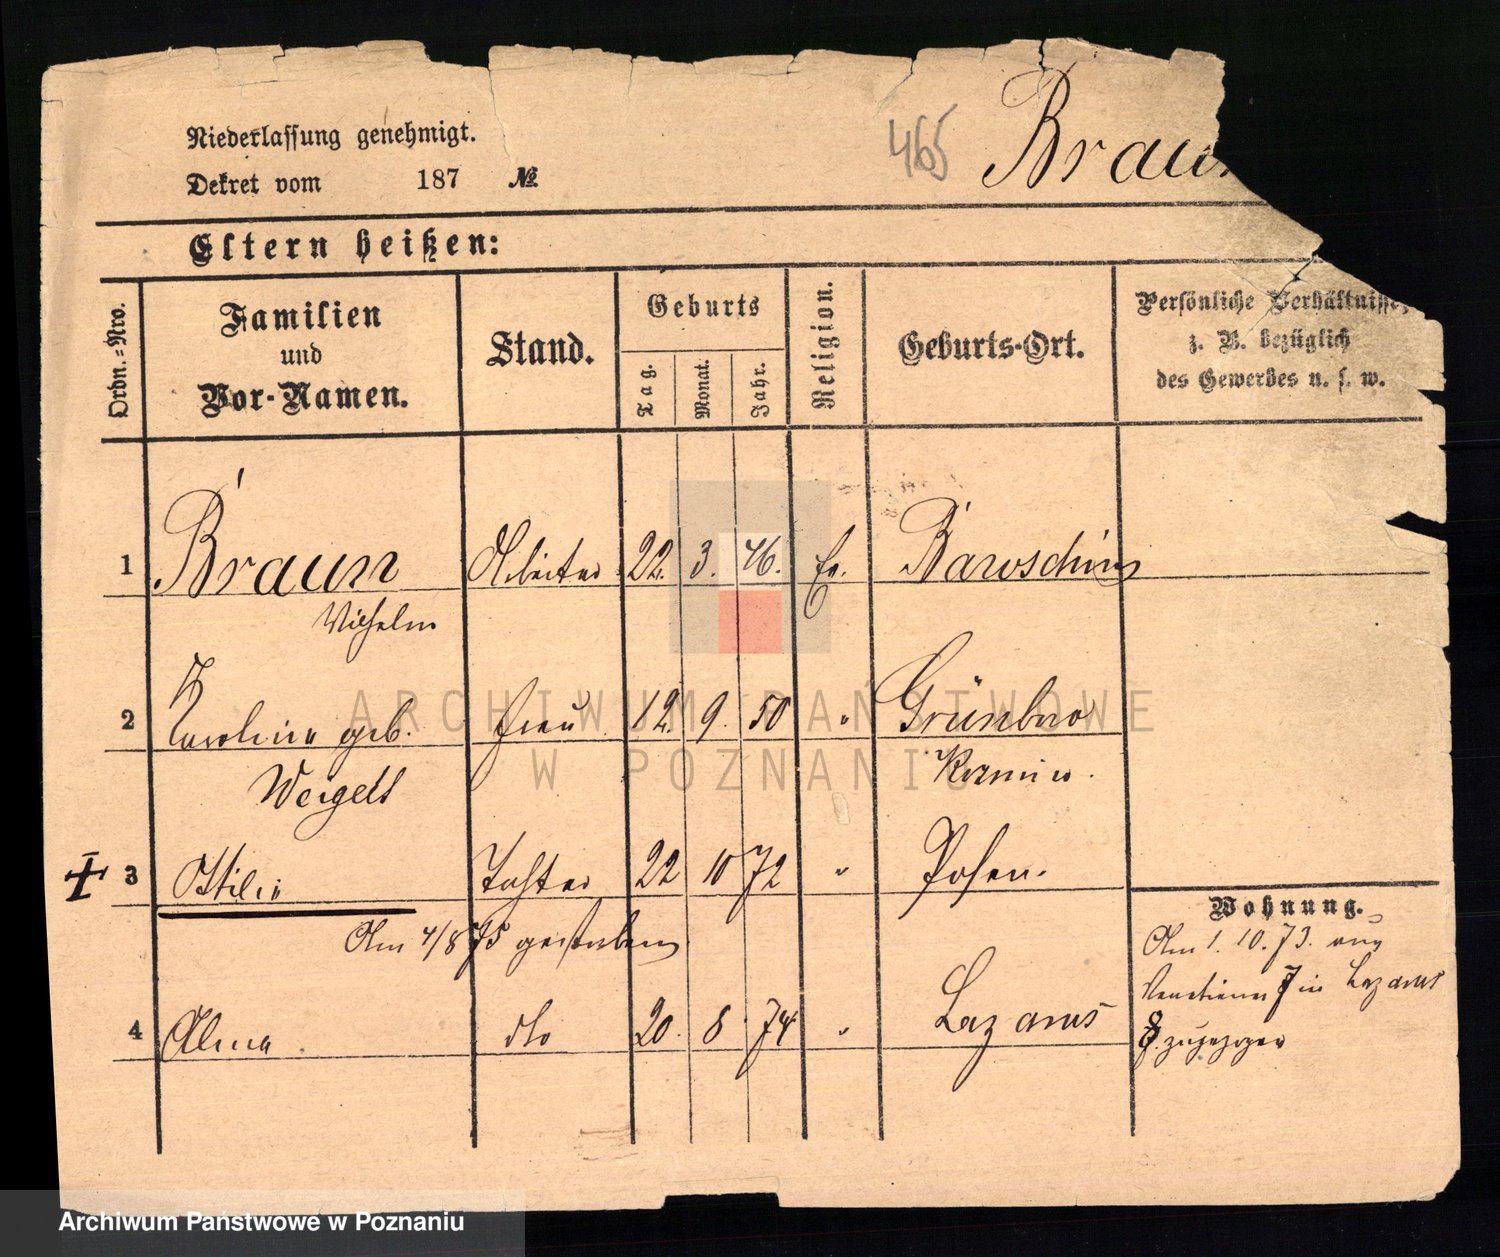 Niederlassung genehmigt.
Dekret vom 187 №
465 Braun
Eltern heißen:
Ordn.=Nro.
Familien
und
Vor-Namen.
Stand.
Geburts
Tag.
Monat.
Jahr.
Religion.
Geburts-Ort.
Persönliche Verhältnisse,
z. B. bezüglich
des Gewerbes u. s. w.
1 Braun Arbeiter 22. 3. 46. Ev.
Wilhelm
2 Karoline geb. Frau 12. 9. 50 "
Weigelt
3 Ottilie Tochter 22 10 72 " Posen.
Am 4/8 75 gestorben
4 Alma dto 20. 8. 74. " Lazarus
Wohnung.
Am 1. 10. 73. aus
in Lazarus
zugezogen
ARCHIWUM PAŃSTWOWE
W POZNANIU
Archiwum Państwowe w Poznaniu